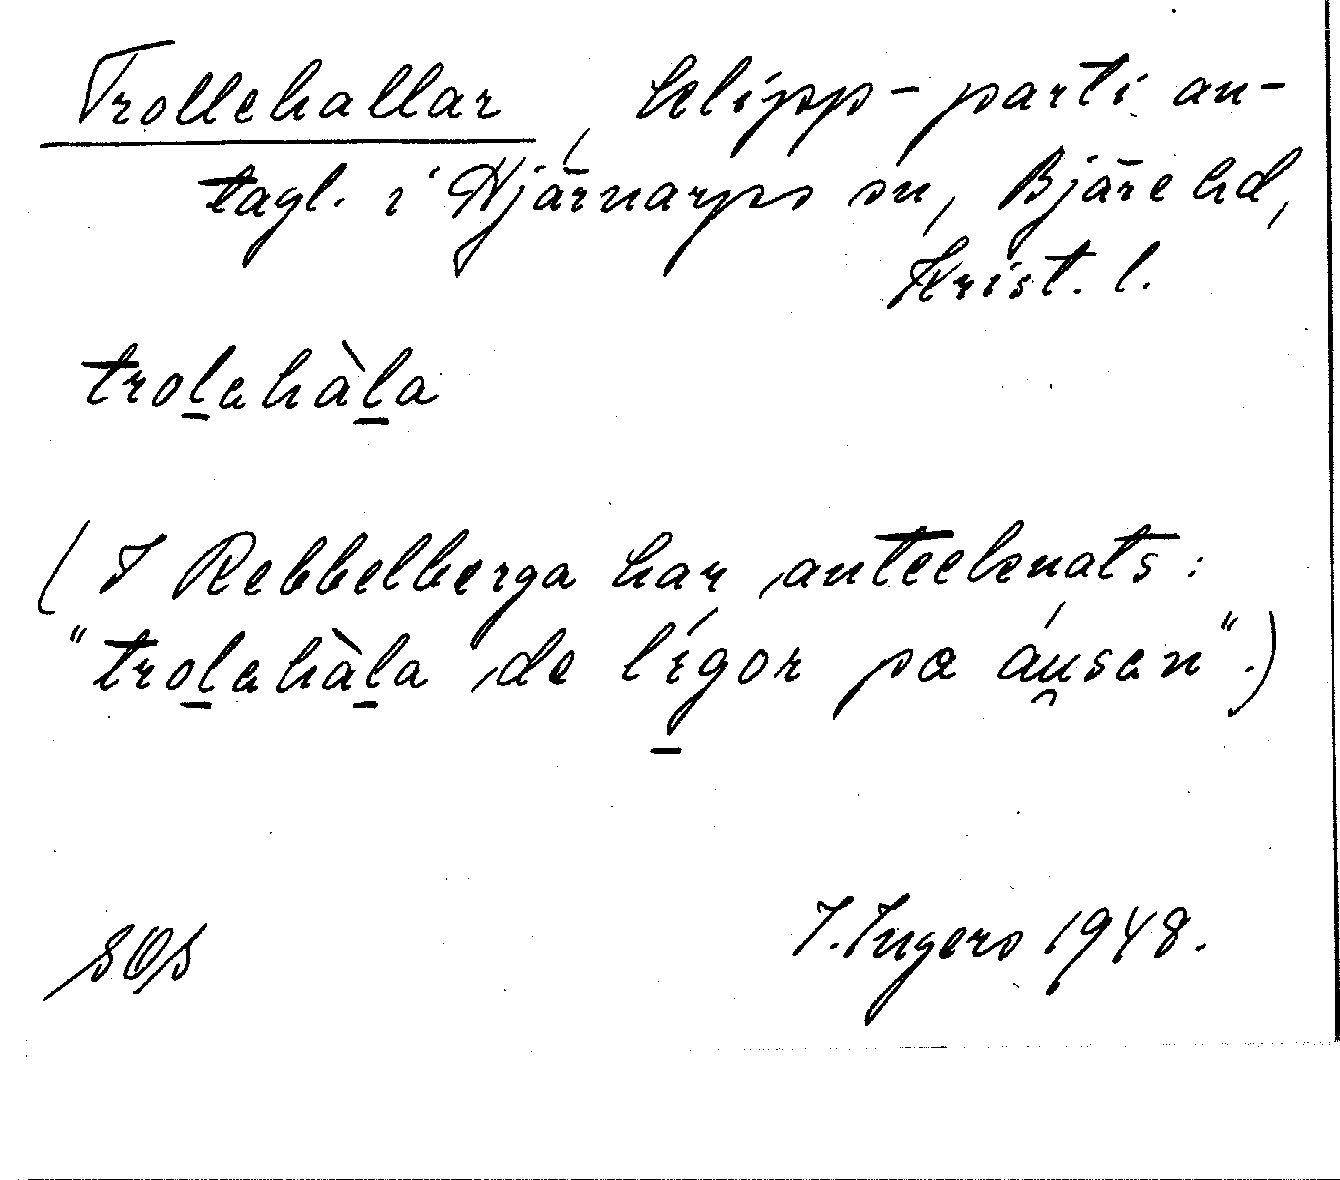 Trollehallar, klipp-parti an-
tagl. i Hjärnarps sn, Bjäre hd,
Krist. l.
trol̲ahàl̲a
(I Rebbelberga har antecknats:
"trol̲ahàl̲a de lígor pa áu̯san".)
SOS
I. Ingers 1948.